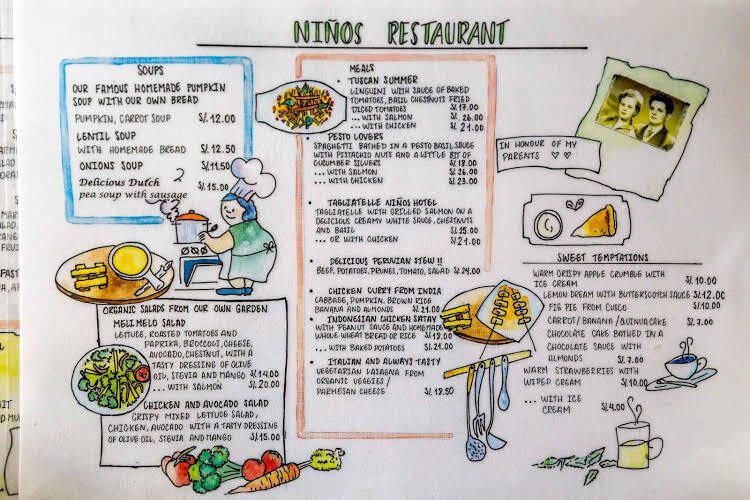 NIÑOS RESTAURANT
SOUPS
OUR FAMOUS HOMEMADE PUMPKIN
SOUP WITH OUR OWN BREAD
PUMPKIN, CARROT SOUP S/. 12.00
LENTIL SOUP
WITH HOMEMADE BREAD S/. 12.50
ONIONS SOUP S/. 11.50
Delicious Dutch
pea soup with sausage S/. 15.00
ORGANIC SALADS FROM OUR OWN GARDEN
MELI MELO SALAD
LETTUCE, ROASTED TOMATOES AND
PAPRIKA, BROCCOLI, CHEESE,
AVOCADO, CHESTNUT, WITH A
TASTY DRESSING OF OLIVE
OIL, STEVIA AND MANGO S/. 14.00
... WITH SALMON S/. 20.00
CHICKEN AND AVOCADO SALAD
CRISPY MIXED LETTUCE SALAD,
CHICKEN, AVOCADO WITH A TASTY DRESSING
OF OLIVE OIL, STEVIA AND MANGO S/. 15.00
MEALS
• TUSCAN SUMMER
LINGUINI WITH SAUCE OF BAKED
TOMATOES, BASIL CHESTNUTS FRIED
DICED TOMATOES S/. 17.00
... WITH SALMON S/. 26.00
... WITH CHICKEN S/. 21.00
• PESTO LOVERS
SPAGHETTI BATHED IN A PESTO BASIL SAUCE
WITH PISTACHIO NUTS AND A LITTLE BIT OF
CUCUMBER SLIVERS S/. 18.00
... WITH SALMON S/. 26.00
... WITH CHICKEN S/. 23.00
• TAGLIATELLE NIÑOS HOTEL
TAGLIATELLE WITH GRILLED SALMON ON A
DELICIOUS CREAMY WHITE SAUCE, CHESTNUTS
AND BASIL S/. 25.00
... OR WITH CHICKEN S/. 21.00
• DELICIOUS PERUVIAN STEW !!
BEEF, POTATOES, PRUNES, TOMATO, SALAD S/. 24.00
• CHICKEN CURRY FROM INDIA
CABBAGE, PUMPKIN, BROWN RICE
BANANA AND ALMONDS S/. 21.00
• INDONESIAN CHICKEN SATAY
WITH PEANUT SAUCE AND HOMEMADE
WHOLE WHEAT BREAD OR RICE S/. 18.00
... WITH BAKED POTATOES S/. 21.00
• ITALIAN AND ALWAYS TASTY
VEGETARIAN LASAGNA FROM
ORGANIC VEGGIES /
PARMESAN CHEESE S/. 18.50
IN HONOUR OF MY
PARENTS
SWEET TEMPTATIONS
WARM CRISPY APPLE CRUMBLE WITH
ICE CREAM S/. 10.00
LEMON DREAM WITH BUTTERSCOTCH SAUCE S/. 12.00
FIG PIE FROM CUSCO S/. 10.00
CARROT / BANANA / QUINUA CAKE S/. 7.00
CHOCOLATE CAKE BATHED IN A
CHOCOLATE SAUCE WITH
ALMONDS S/. 7.00
WARM STRAWBERRIES WITH
WIPED CREAM S/. 10.00
... WITH ICE
CREAM S/. 4.00